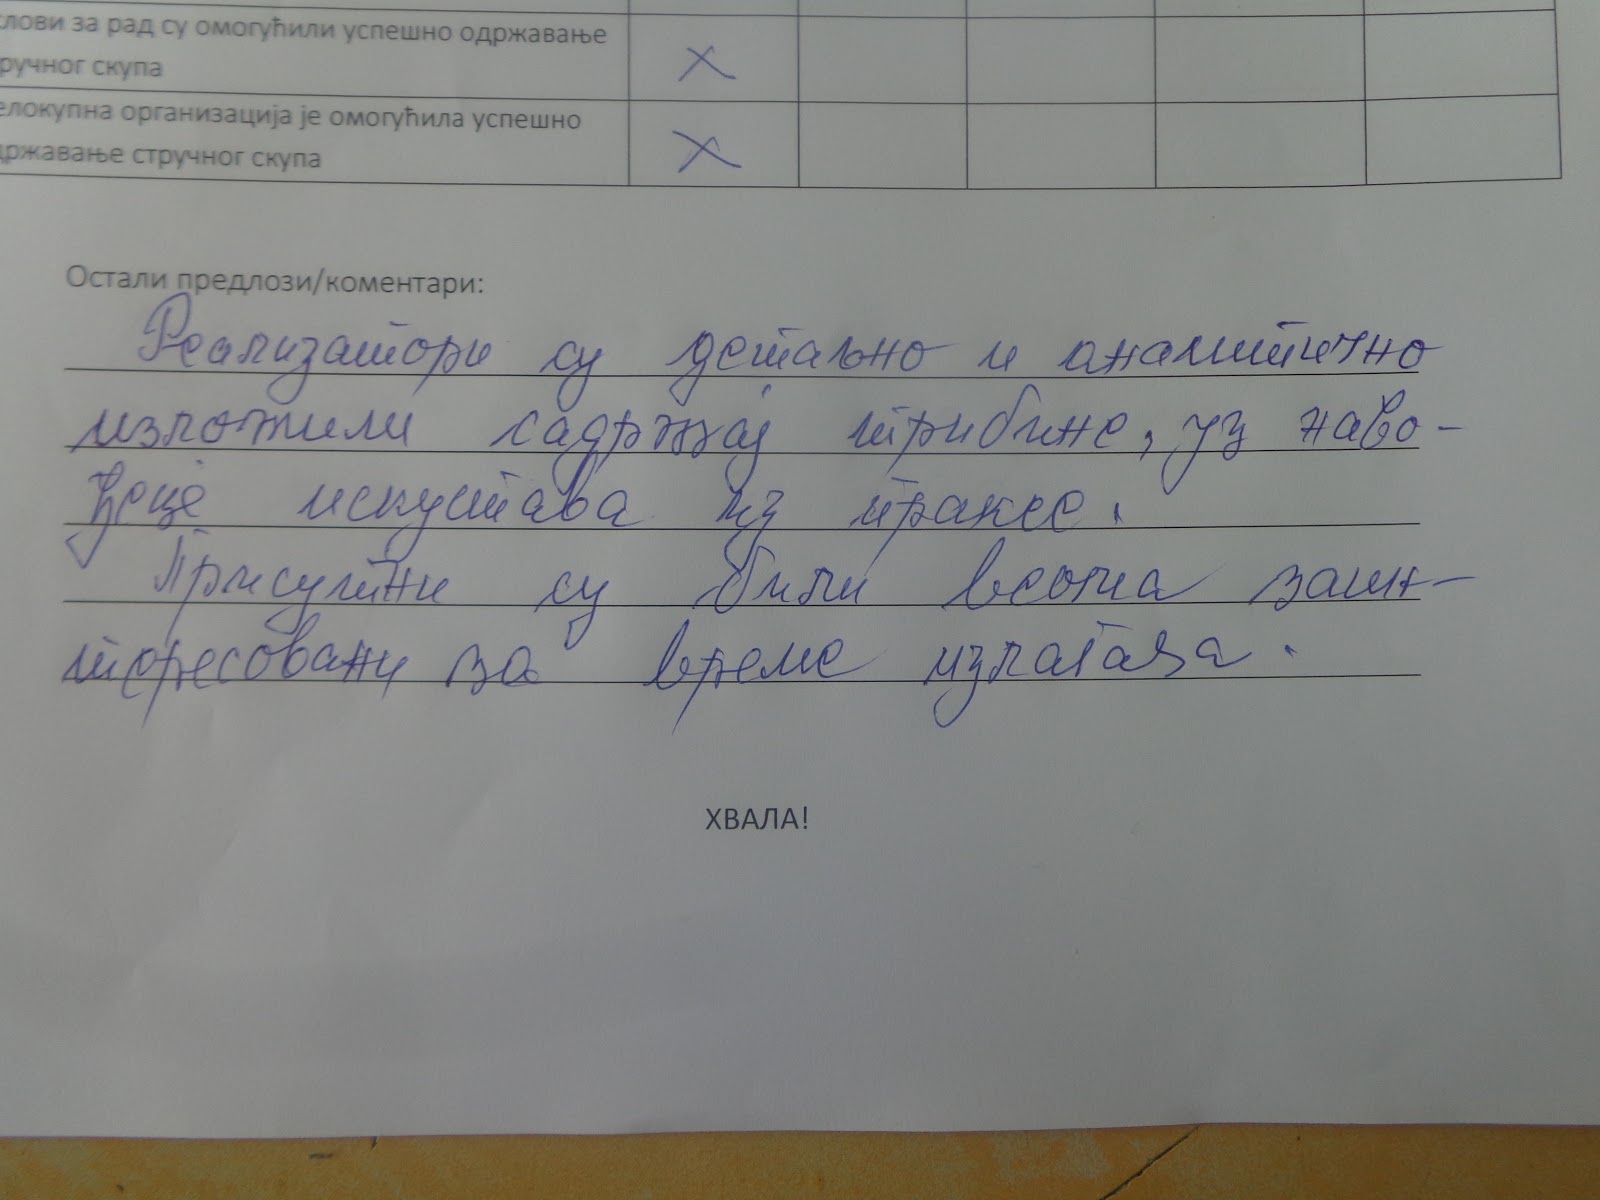 слови за рад су омогућили успешно одржавање
ручног скупа
елокупна организација је омогућила успешно
државање стручног скупа
Остали предлози/коментари:
Реализатори су детаљно и аналитично
изложили садржај трибине, уз наво-
ђење искустава из праксе.
Присутни су били веома заин-
тересовани за време излагања.
ХВАЛА!